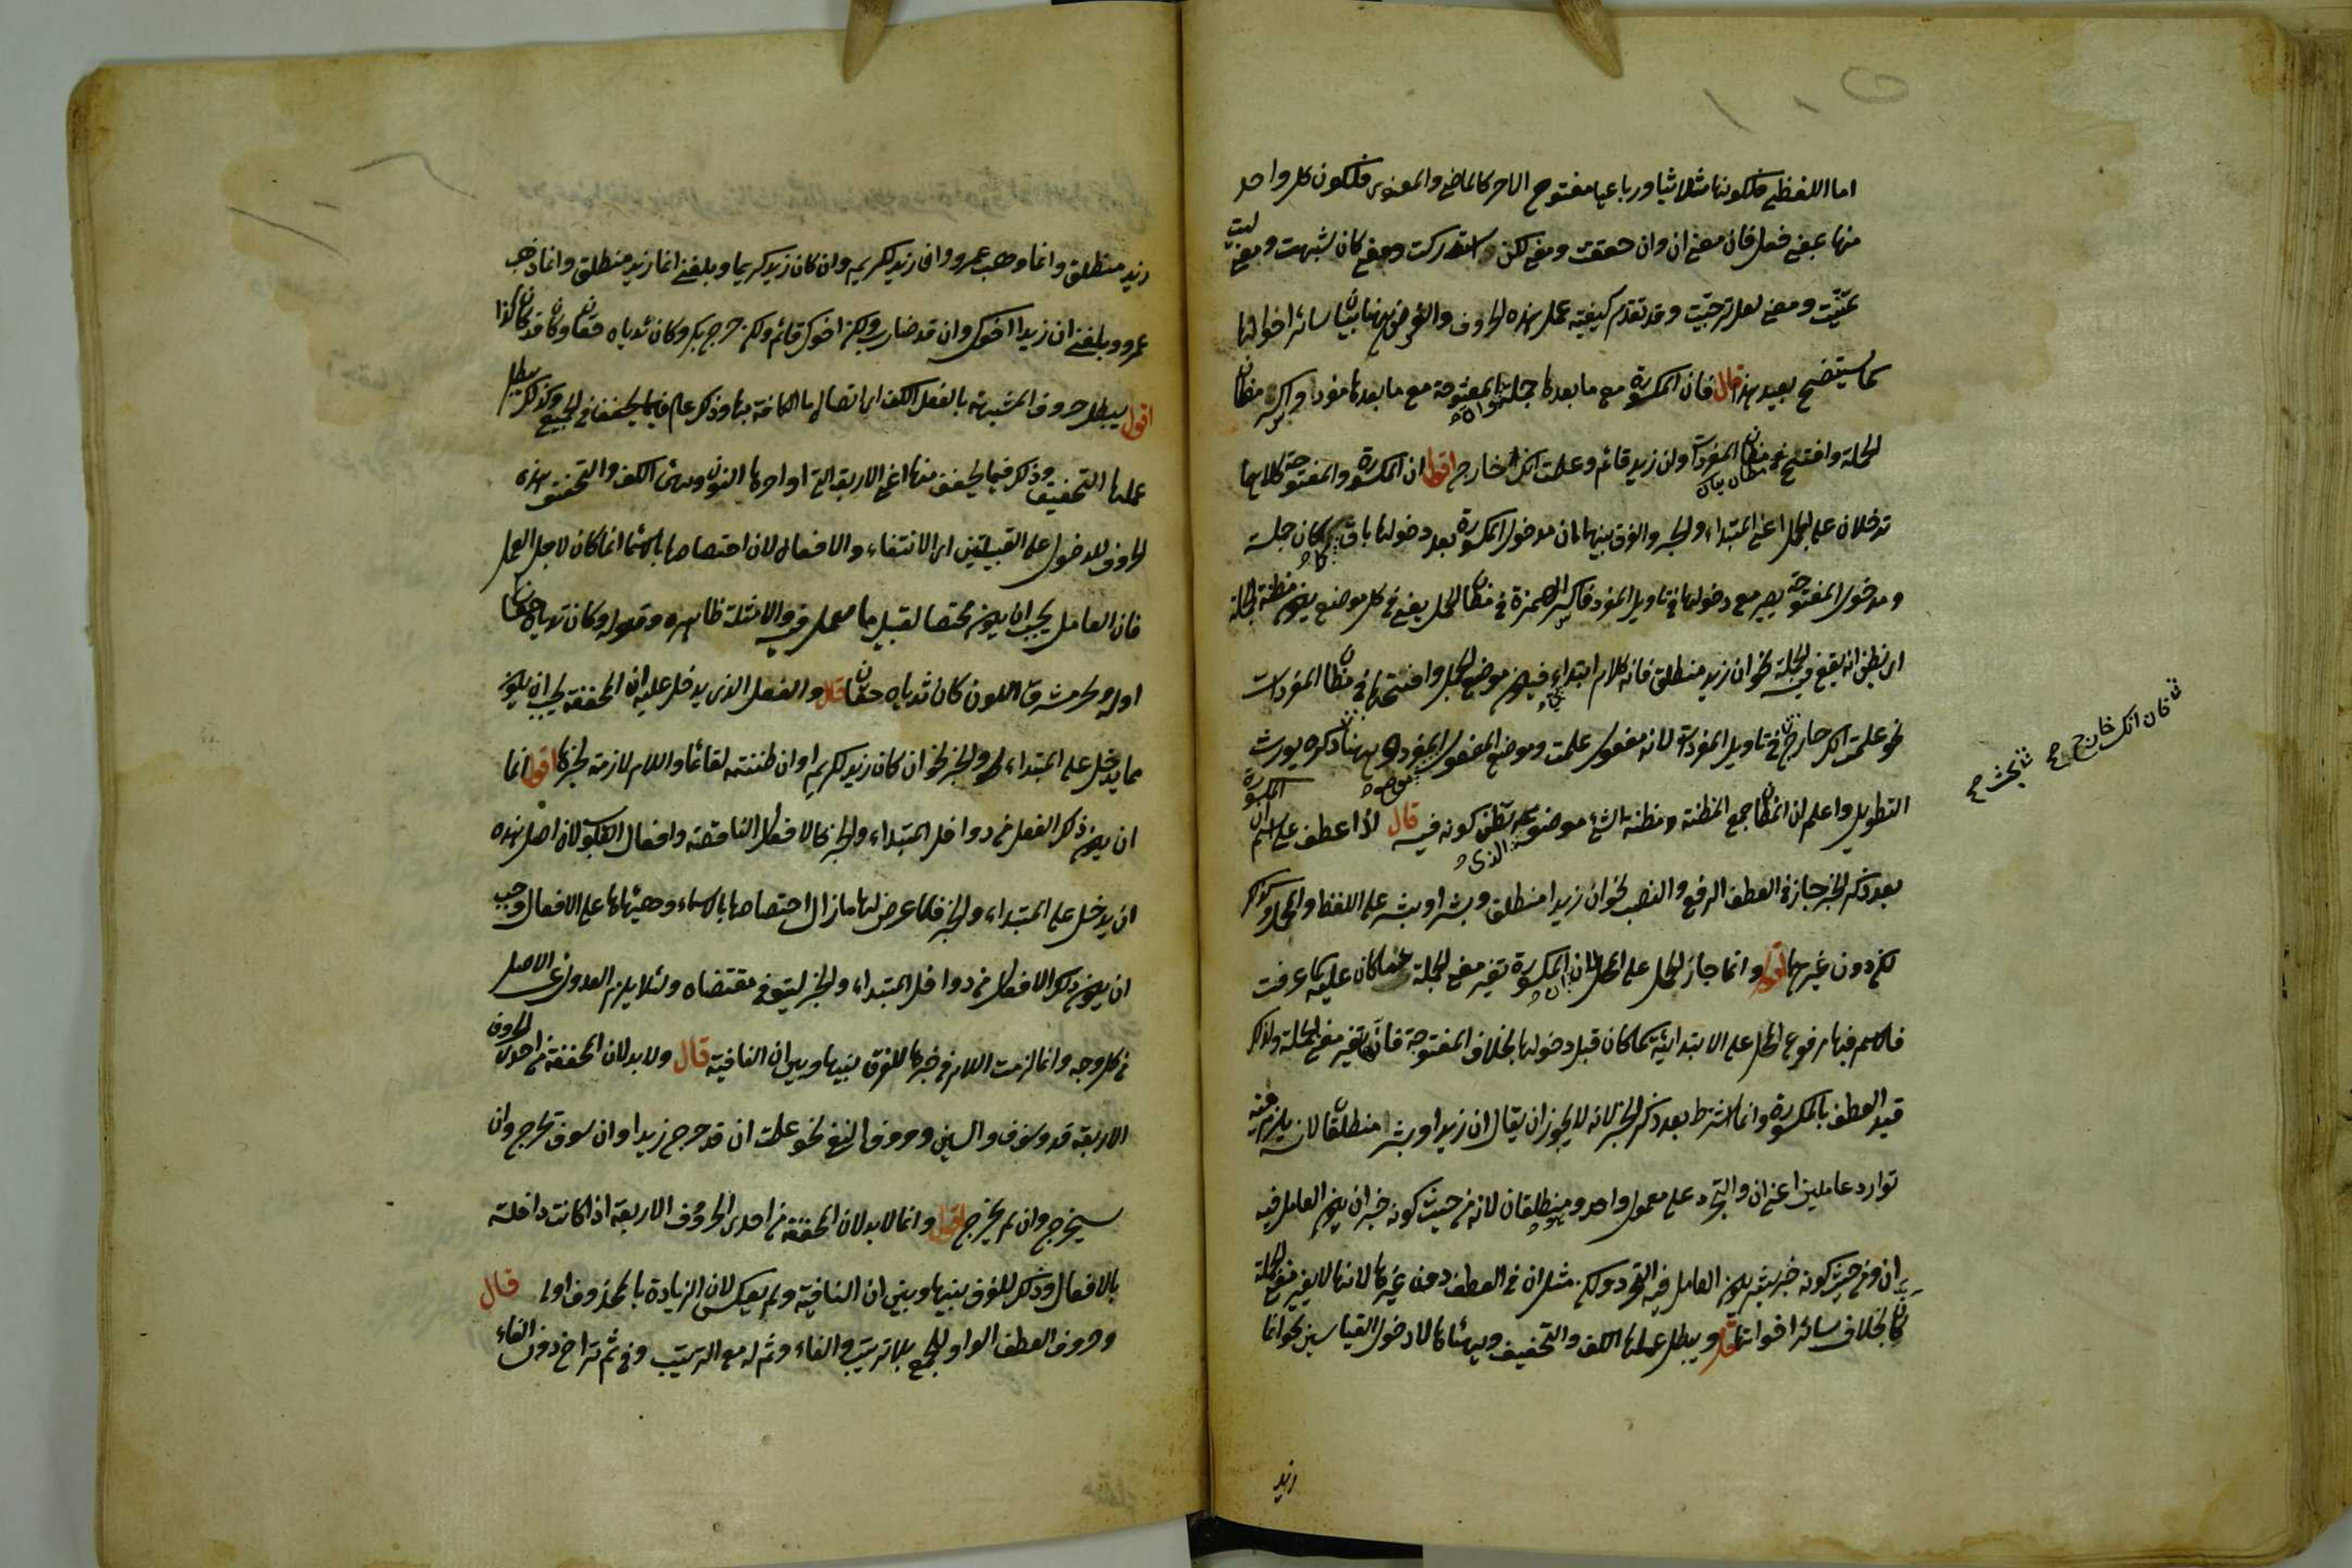 اما اللفظي فلكونها ثلاثيا ورباعيا مفتوح الاخر كالماضي والمعنوي فلكون كل واحد
منها بمعنى فعل فان معنى ان وان حققت ومعنى لكن استدركت ومعنى كان شبهت ومعنى ليت
تمنيت ومعنى لعل ترجيت وقد تقدم كيفية عمل هذه الحروف والغرض ههنا بيان سائر احوالها
كما سيتضح بعيد هذا قال فان المكسورة مع ما بعدها جملة والمفتوحة مع ما بعدها مفرد واكسر مظان
الجملة وافتتح مظان المفردات وان زيد قائم وعلمت انك خارج اقول ان المكسورة والمفتوحة كلاهما
تدخلان على الجمل اعني المبتداء والخبر والفرق بينهما ان مدخول المكسورة بعد دخولها باق كما كان جملة
ومدخول المفتوحة يصير مع دخولها في تاويل المفرد فاكسر الهمزة في مظان الجمل يعني في كل موضع يكون مظنة الجملة
اي يظن انه يقع فيه الجملة نحو ان زيد منطلق فانه كلام ابتداء فيكون موضع الجمل وافتحها في مظان المفردات
نحو علمت انك خارج في تاويل المفردات لانه مفعول علمت وموضع المفعول المفرد وههنا ذكره يورث
التطويل واعلم ان المظان جمع المظنة ومظنة الشئ موضوعه يظن كونه فيه قال اذا عطف على اسم ان المكسورة
بعد ذكر الخبر جاز في العطف الرفع والنصب نحو ان زيدا منطلق وبشرا وبشر على اللفظ والمحل وكذلك
لكن دون غيرهما اقول وانما جاز الحمل على المحل لان المكسورة تغير معنى الجملة عما كان عليه كما عرفت
فالاسم فيها مرفوع المحل على الابتدائية كما كان قبل دخولها بخلاف المفتوحة فانها تغير معنى الجملة ولذلك
قيد العطف بالمكسورة وانما اشترط بعد ذكر الخبر لانه لا يجوز ان يقال ان زيدا وبشر منطلقان لانه يلزم منه
توارد عاملين اعني ان والتجرد على معمول واحد وهو منطلقان لانه من حيث كونه خبر ان يكون العامل فيه
ان ومن حيث كونه خبر بشر يكون العامل فيه التجرد ولكن مثل ان في العطف دون غيرها لانها لا يغير معنى الجملة
كان بخلاف سائر اخواتها قال ويبطل عملها الكف والتخفيف ويهيئانها لادخول القياسين نحو انما
زيد
فان انك خارج
زيد منطلق وانما وهب عمرو وان زيد لكريم وان كان زيد كريما وبلغني انما زيد منطلق وانما ذهب
عمرو وبلغني ان زيدا اخوك وان قد ضارب ولكن اخوك قائم ولكن خرج بكر وكان ثدياه حقان وكان قد كان كذا
اقول يبطل حروف المشبهة بالفعل الكف اي اتصال ما الكافة بها وذكر عام فيما يخفف في الجميع وكذلك يبطل
عملها التخفيف وذكر فيما يخفف منها اعني الاربعة التي اواخرها النون ويهيئ الكف والتخفيف هذه
الحروف للدخول على القبيلتين اي الاسماء والافعال لان اختصاصها بالاسماء انما كان لاجل العمل
فان العامل يجب ان يكون مختصا لقبيل ما يعمل فيه والامثلة ظاهره وقوله وكان ثدياه حقان
اوله ونحر مشرق اللون كان ثدياه حقان قال والفعل الذي يدخل عليه ان المخففة يجب ان يكون
مما يدخل على المبتداء والخبر نحو ان كان زيد لكريم او ان ظننته لقائما واللام لازمة لخبرها اقول انما
ان يكون ذكر الفعل من دواخل المبتداء والخبر كالافعال الناقصة وافعال القلوب لان اصل هذه
ان يدخل على المبتداء والخبر فلما عرض لها ما زال اختصاصها بالاسماء وهيئها على الافعال وجب
ان يكون ذلك الافعال من دواخل المبتداء والخبر ليتوفى مقتضاه ولئلا يلزم العدول عن الاصل
من كل وجه وانما لزمت اللام في خبرها للفرق بينها وبين ان النافية قال ولا بد لان المخففة من احدى الحروف
الاربعة قد وسوف والسين وحروف النفي نحو علمت ان قد خرج زيدا وان سوف يخرج وان
سيخرج وان لم يخرج اقول وانما لا بد لان المخففة من احدى الحروف الاربعة اذا كانت داخلة
بالافعال وذلك للفرق بينها وبين ان النافية ولم يعكس لان الزيادة بالمحذوف اولى قال
وحروف العطف الواو للجمع بلا ترتيب والفاء وثم له مع الترتيب وفي ثم تراخ دون الفاء